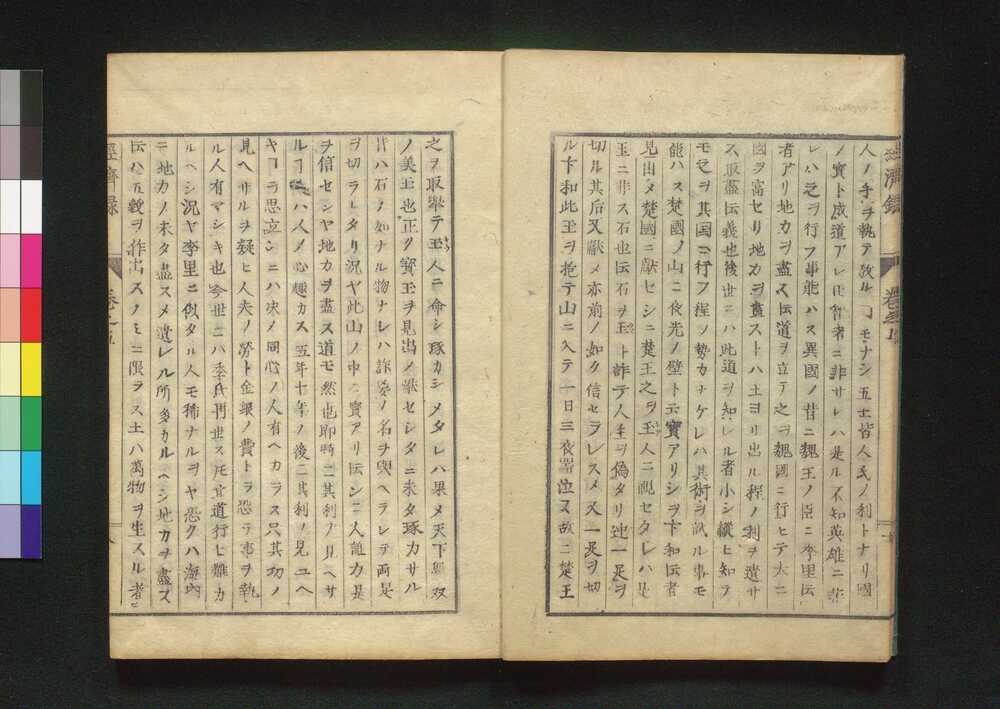 人ノ手ヲ執テ教ル モナシ五土皆人民ノ利トナリ國
ノ寳ト成道アレ 作者ニ非サレハ是ル不知英雄ニ非
レハ之ヲ行フ事能ハス異國ノ昔ニ魏王ノ臣ニ李里伝
者アリ地カヲ盡ス伝道ヲ立テ之ヲ魏國ニ行ヒテ大ニ
國ヲ富セリ地カヲ盡ストハ土ヨリ出ル程ノ利ヲ遺サ
ス取盡伝義也後世ニハ此道ヲ知レル者小シ纔ヒ知ラ
モ之ヲ其国ニ行フ程ノ勢カナケレハ其術ヲ試ル事モ
能ハス楚國ノ山ニ夜光ノ壁ト云寳アリシヲ卞和伝者
見出メ楚國ニ獻セシニ楚王之ヲ玉人ニ視セタレハ是
玉ニ非ス石也伝石ヲ玉ト詐テ人主ヲ偽タリ迚一足ヲ
切ル其后又獻メ亦前ノ如ク信セラレスメ又一足ヲ切
ル卞和此玉ヲ抱テ山ニ入テ一日三夜 泣ス故ニ楚王
經濟録 卷之五
之ヲ取擧テ玉人ニ命シ琢カシメタレハ果メ天下無双
ノ美玉也正ク寳玉ヲ見出メ獻セシタニ未タ琢カサル
ハ石ノ如ナル物ナレハ詐妄ノ名ヲ與ヘラレテ両足
ヲ切ラレタリ況ヤ此山ノ中ニ寳アリ伝シニ人誰カ是
ヲ信センヤ地カヲ盡ス道モ然也即時ニ其利ノ見ヘサ
ルヿニハ人メ心趣カス五年十年ノ後ニ其利ノ見ユヘ
キヿヲ思立シニハ决メ同心ノ人有ヘカラス只其功ノ
見ヘサルヲ疑ヒ人夫ノ勞ト金銀ノ費トヲ恐テ事ヲ執
ル人有マシキ也今世ニハ李氏再世ス圧其道行ヒ難カ
ルヘシ況ヤ李里ニ似タル人モ稀ナルヲヤ恐クハ海内
ニ地カノ未タ盡スメ遺レル所多カルヘシ地カヲ盡ス
伝ハ五穀ヲ作出スノミニ限ラス土ハ萬物ヲ生スル者ニ
經濟録 卷之五